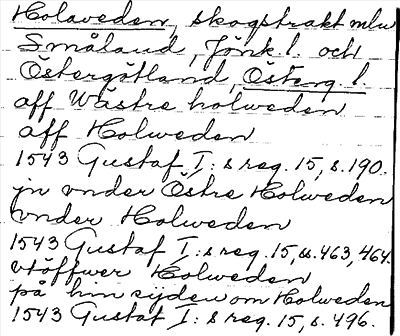 Holaveden, skogstrakt mlw
Småland, Jönk. l. och
Östergötland, Österg. l.
aff Wästre holweden
aff Holweden
1543 Gustaf I:s reg. 15, s. 190.
jn vnder Östre Holweden
vnder Holweden
1543 Gustaf I:s reg. 15, ss. 463, 464.
vtöffwer Holweden
på hin sijden om Holweden
1543 Gustaf I:s reg. 15, s. 496.